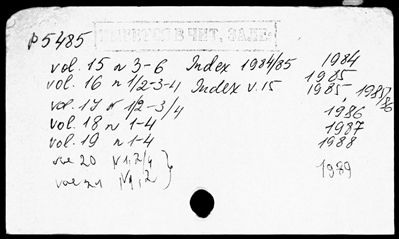 p 5485
ИМЕЕТСЯ В ЧИТ. ЗАЛЕ
vol. 15 n 3-6 Index 1984/85 1984
vol. 16 n 1/2-3-4 Index v. 15 1985
1985 1985/86
vol. 17 N 1/2-3/4
vol. 18 n 1-4 1986
vol. 19 n 1-4 1987
1988
vol 20 N 1, 2/4
vol 21 N 1, 2 1989